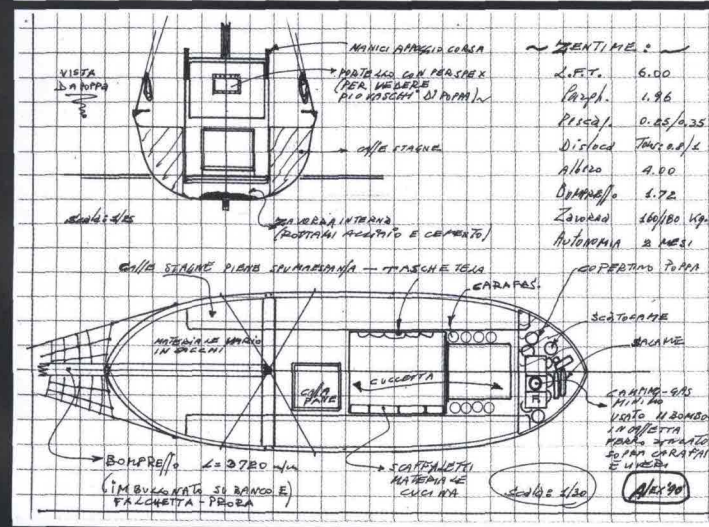 VISTA
DA POPPA
MANICI APPOGGIO CORSA
PORTELLO CON PERSPEX
(PER VEDERE
DI POPPA)
CALLE STAGNE
ZAVORRA INTERNA
(ROTTAMI ACCIAIO E CEMENTO)
SCALA: 1/25
~ ZENTIME: ~
L.F.T. 6.00
Largh. 1.96
Pescag. 0.25/0.35
Disloca Tonn: 0.8/1
Albero 4.00
Bompresso 1.72
Zavorra 160/180 Kg.
AUTONOMIA 2 MESI
CALLE STAGNE PIENE SPUMAESPANSA — TASCHE TELA
CARAFFE
COPERTINO POPPA
SCATOLAME
MATERIALE VARIO
IN SACCHI
CALA
PANE
CUCCETTA
CAMPING-GAS
MINIMO
USATO
IN CASSETTA
FERRO ZINCATO
SOPRA CARAFFE
E VIVERI
BOMPRESSO L= 3720 m/m
(IMBULLONATO SU BANCO E
FALCHETTA - PRORA)
SCAFFALETTI
MATERIALE
CUCINA
SCALA: 1/30
Alex '90